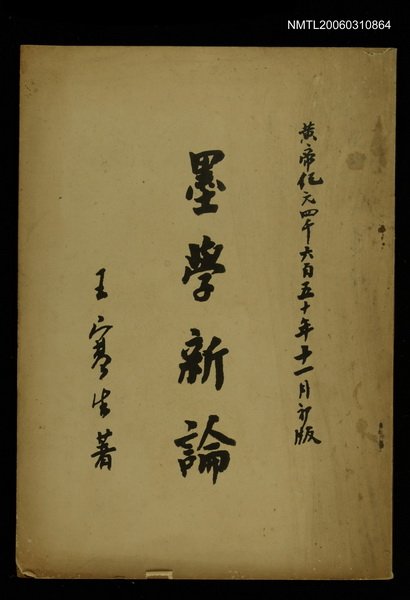 NMTL20060310864
黃帝紀元四千六百五十年十一月初版
墨學新論
王寒生著